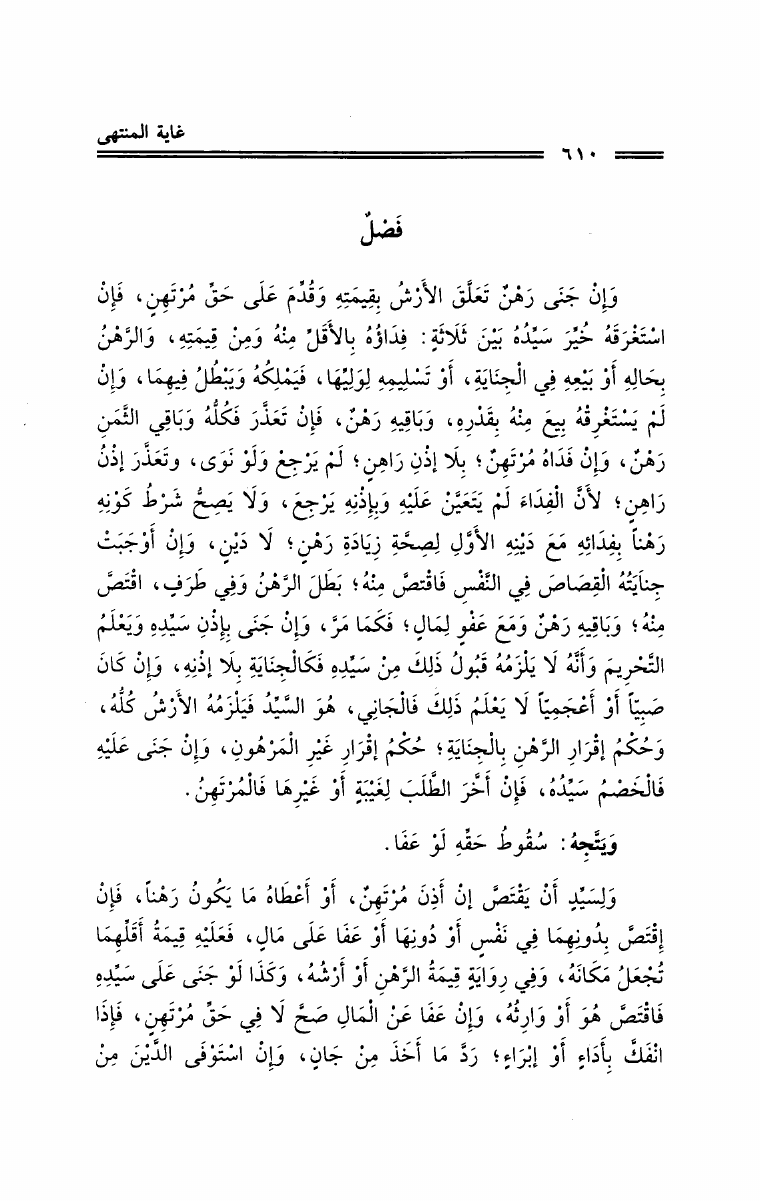 غاية المنتهى
٦١٠
فَصْلٌ
وَإِنْ جَنَى رَهْنٌ تَعَلَّقَ الأَرْشُ بِقِيمَتِهِ وَقُدِّمَ عَلَى حَقِّ مُرْتَهِنٍ، فَإِنْ
اسْتَغْرَقَهُ خُيِّرَ سَيِّدُهُ بَيْنَ ثَلَاثَةٍ: فِدَاؤُهُ بِالأَقَلِّ مِنْهُ وَمِنْ قِيمَتِهِ، وَالرَّهْنُ
بِحَالِهِ أَوْ بَيْعِهِ فِي الْجِنَايَةِ، أَوْ تَسْلِيمِهِ لِوَلِيِّهَا، فَيَمْلِكُهُ وَيَبْطُلُ فِيهِمَا، وَإِنْ
لَمْ يَسْتَغْرِقْهُ بِيعَ مِنْهُ بِقَدْرِهِ، وَبَاقِيهِ رَهْنٌ، فَإِنْ تَعَذَّرَ فَكُلُّهُ وَبَاقِي الثَّمَنِ
رَهْنٌ، وَإِنْ فَدَاهُ مُرْتَهِنٌ؛ بِلَا إِذْنِ رَاهِنٍ؛ لَمْ يَرْجِعْ وَلَوْ نَوَى، وتَعَذَّرَ إِذْنُ
رَاهِنٍ؛ لأَنَّ الْفِدَاءَ لَمْ يَتَعَيَّنْ عَلَيْهِ وَبِإِذْنِهِ يَرْجِعَ، وَلَا يَصِحُّ شَرْطُ كَوْنِهِ
رَهْناً بِفِدَائِهِ مَعَ دَيْنِهِ الأَوَّلِ لِصِحَّةِ زِيَادَةِ رَهْنٍ؛ لَا دَيْنٍ، وَإِنْ أَوْجَبَتْ
جِنَايَتُهُ الْقِصَاصَ فِي النَّفْسِ فَاقْتصَّ مِنْهُ؛ بَطَلَ الرَّهْنُ وَفِي طَرَفٍ، اقْتَصَّ
مِنْهُ؛ وَبَاقِيهِ رَهْنٌ وَمَعَ عَفْوٍ لِمَالٍ؛ فَكَمَا مَرَّ، وَإِنْ جَنَى بِإِذْنِ سَيِّدِهِ وَيَعْلَمُ
التَّحْرِيمَ وَأَنَّهُ لَا يَلْزَمُهُ قَبُولُ ذَلِكَ مِنْ سَيِّدِهِ فَكَالْجِنَايَةِ بِلَا إِذْنِهِ، وَإِنْ كَانَ
صَبِيّاً أَوْ أَعْجَمِيّاً لَا يَعْلَمُ ذَلِكَ فَالْجَانِي، هُوَ السَّيِّدُ فَيَلْزَمُهُ الأَرْشُ كُلُّهُ،
وَحُكْمُ إِقْرَارِ الرَّهْنِ بِالْجِنَايَةِ؛ حُكْمُ إِقْرَارِ غَيْرِ الْمَرْهُونِ، وَإِنْ جَنَى عَلَيْهِ
فَالْخَصْمُ سَيِّدُهُ، فَإِنْ أَخَّرَ الطَّلَبَ لِغَيْبَةٍ أَوْ غَيْرِهَا فَالْمُرْتَهِنُ.
وَيَتَّجِهُ: سُقُوطُ حَقِّهِ لَوْ عَفَا.
وَلِسَيِّدٍ أَنْ يَقْتَصَّ إِنْ أَذِنَ مُرْتَهِنٌ، أَوْ أَعْطَاهُ مَا يَكُونُ رَهْناً، فَإِنْ
إِقْتَصَّ بِدُونِهِمَا فِي نَفْسٍ أَوْ دُونِهَا أَوْ عَفَا عَلَى مَالٍ، فَعَلَيْهِ قِيمَةُ أَقَلِّهِمَا
تُجْعَلُ مَكَانَهُ، وَفِي رِوَايَةٍ قِيمَةُ الرَّهْنِ أَوْ أَرْشُهُ، وَكَذَا لَوْ جَنَى عَلَى سَيِّدِهِ
فَاقْتَصَّ هُوَ أَوْ وَارِثُهُ، وَإِنْ عَفَا عَنْ الْمَالِ صَحَّ لَا فِي حَقِّ مُرْتَهِنٍ، فَإِذَا
انْفَكَّ بِأَدَاءٍ أَوْ إِبْرَاءٍ؛ رَدَّ مَا أَخَذَ مِنْ جَانٍ، وَإِنْ اسْتَوْفَى الدَّيْنَ مِنْ